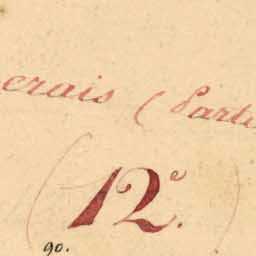 erais (Parti
(12e.)
90.